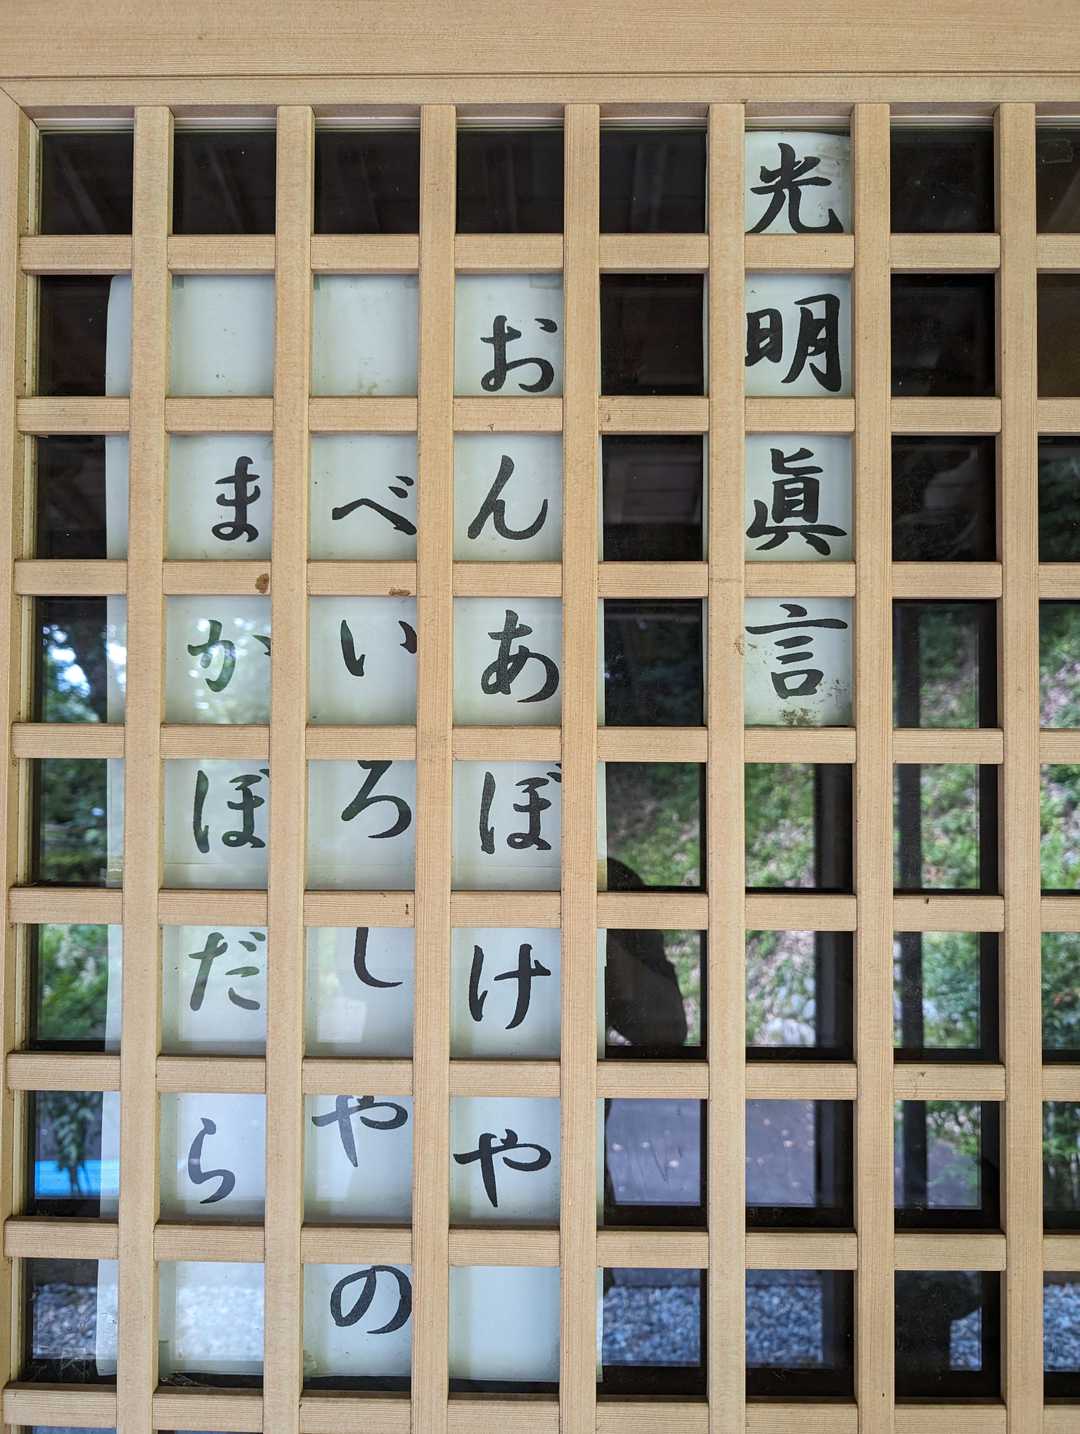 光明眞言
おんあぼけや
べいろしやの
まかぼだら